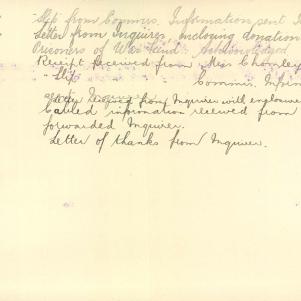 - Slip from Commrs. Information sent I
Letter from Inquirer, enclosing donation
Prisoners of War Fund. Acknowledged
Receipt received from Miss Chomley
- Slip Commrs. Inform
sent Inquirer
Letter received from Inquirer with enclosure
Cabled information received from
forwarded Inquirer.
Letter of thanks from Inquirer.